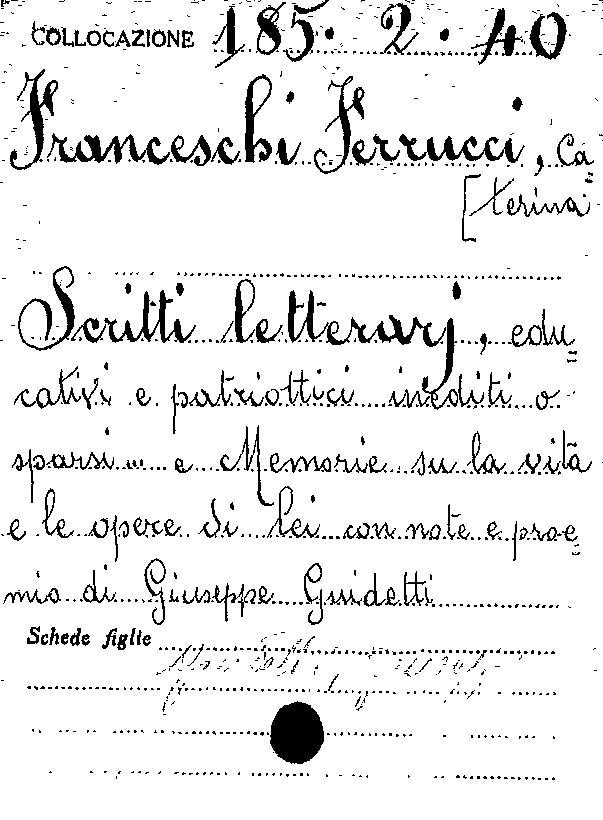 COLLOCAZIONE 185. 2. 40
Franceschi Ferrucci, Ca=
[terina
Scritti letterarj, edu=
cativi e patriottici inediti o
sparsi... e Memorie su la vita
e le opere di lei con note e proe=
mio di Giuseppe Guidetti
Schede figlie